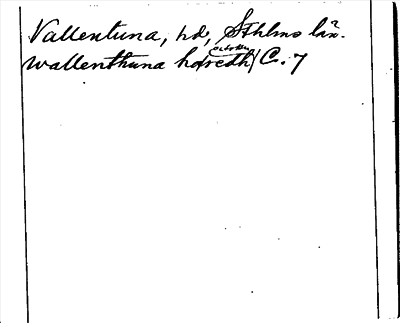 Vallentuna, hd, Sthlms län.
Wallenthuna ha(redh) C. 7